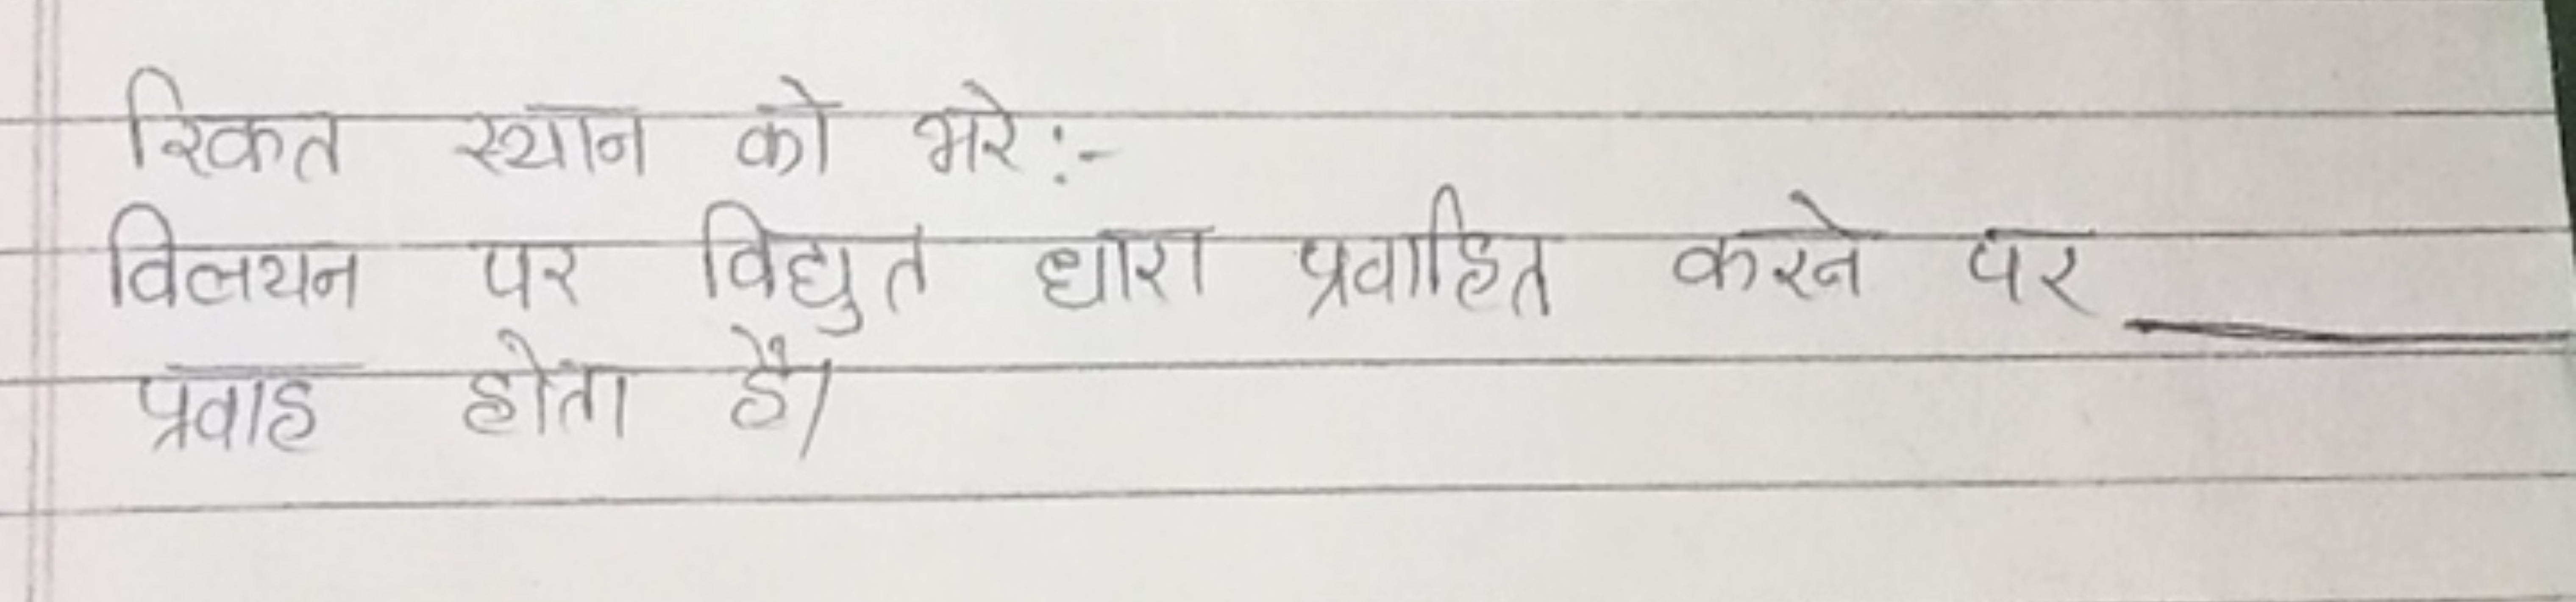 रिक्त स्थान को भरे:-
विलयन पर विद्युत धारा प्रवाहित करने पर ______
प्रवाह होता है।